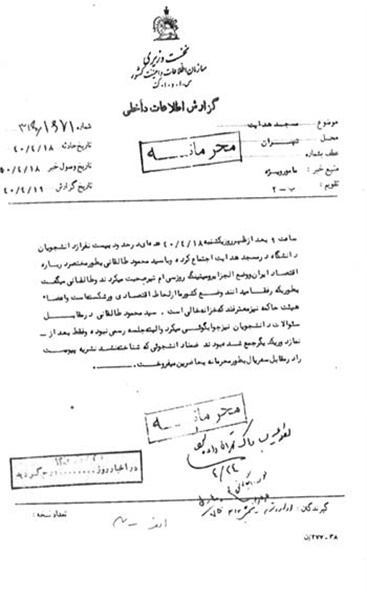 نخست وزیری
سازمان اطلاعات و امنیت کشور
س.ا.و.ا.ک
گزارش اطلاعات داخلی
موضوع مسجد هدایت
محل تهران
عطف بشماره
منبع خبر : مامورویژه
تقویم : ب-۲
شماره
تاریخ حادثه ۴۰/۴/۱۸
تاریخ وصول خبر ۴۰/۴/۱۸
تاریخ گزارش ۴۰/۴/۱۹
محرمانــه
ساعت ۹ بعد از ظهر روز یکشنبه ۴۰/۴/۱۸ عده‌ای در حدود بیست نفر از دانشجویان
دانشگاه در مسجد هدایت اجتماع کرده و با سید محمود طالقانی بطور مختصر درباره
اقتصاد ایران و وضع الجزایر و میتینگ روز سی ام تیر صحبت میکردند و طالقانی میگفت
بطوریکه رفقا میدانند وضع کشور ما از لحاظ اقتصادی ورشکسته است و اعضاء
هیئت حاکمه نیز معترفند که خزانه خالی است . سید محمود طالقانی در مقابل
سئوالات دانشجویان نیز جوابگوئی میکرد والبته جلسه رسمی نبوده و فقط بعد از -
نماز دور یکدیگر جمع شده بودند ضمناً دانشجوئی که شناخته نشد نشریه پیوست
را در مقابل سه ریال بطور محرمانه بحاضرین میفروخت .
محرمانــه
در اخبار روز
گیرندگان :
تعداد نسخه :
ن/۲۷۷-۳۸